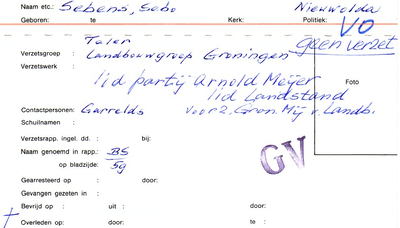 Naam etc.: Sebens, Sebo Nieuwolda
Geboren: te Kerk: Politiek: VO
geen verzet
Taler
Verzetsgroep : Landbouwgroep Groningen
Verzetswerk :
lid partij Arnold Meijer
lid Landstand
Foto
Contactpersonen: Garrelds voorz. Gron. Mij v. Landb.
Schuilnamen :
GV
Verzetsrapp. ingel. dd. : bij:
Naam genoemd in rapp.: BS
op bladzijde: 59
Gearresteerd op : door:
Gevangen gezeten in :
Bevrijd op : uit : door:
Overleden op: door: te :